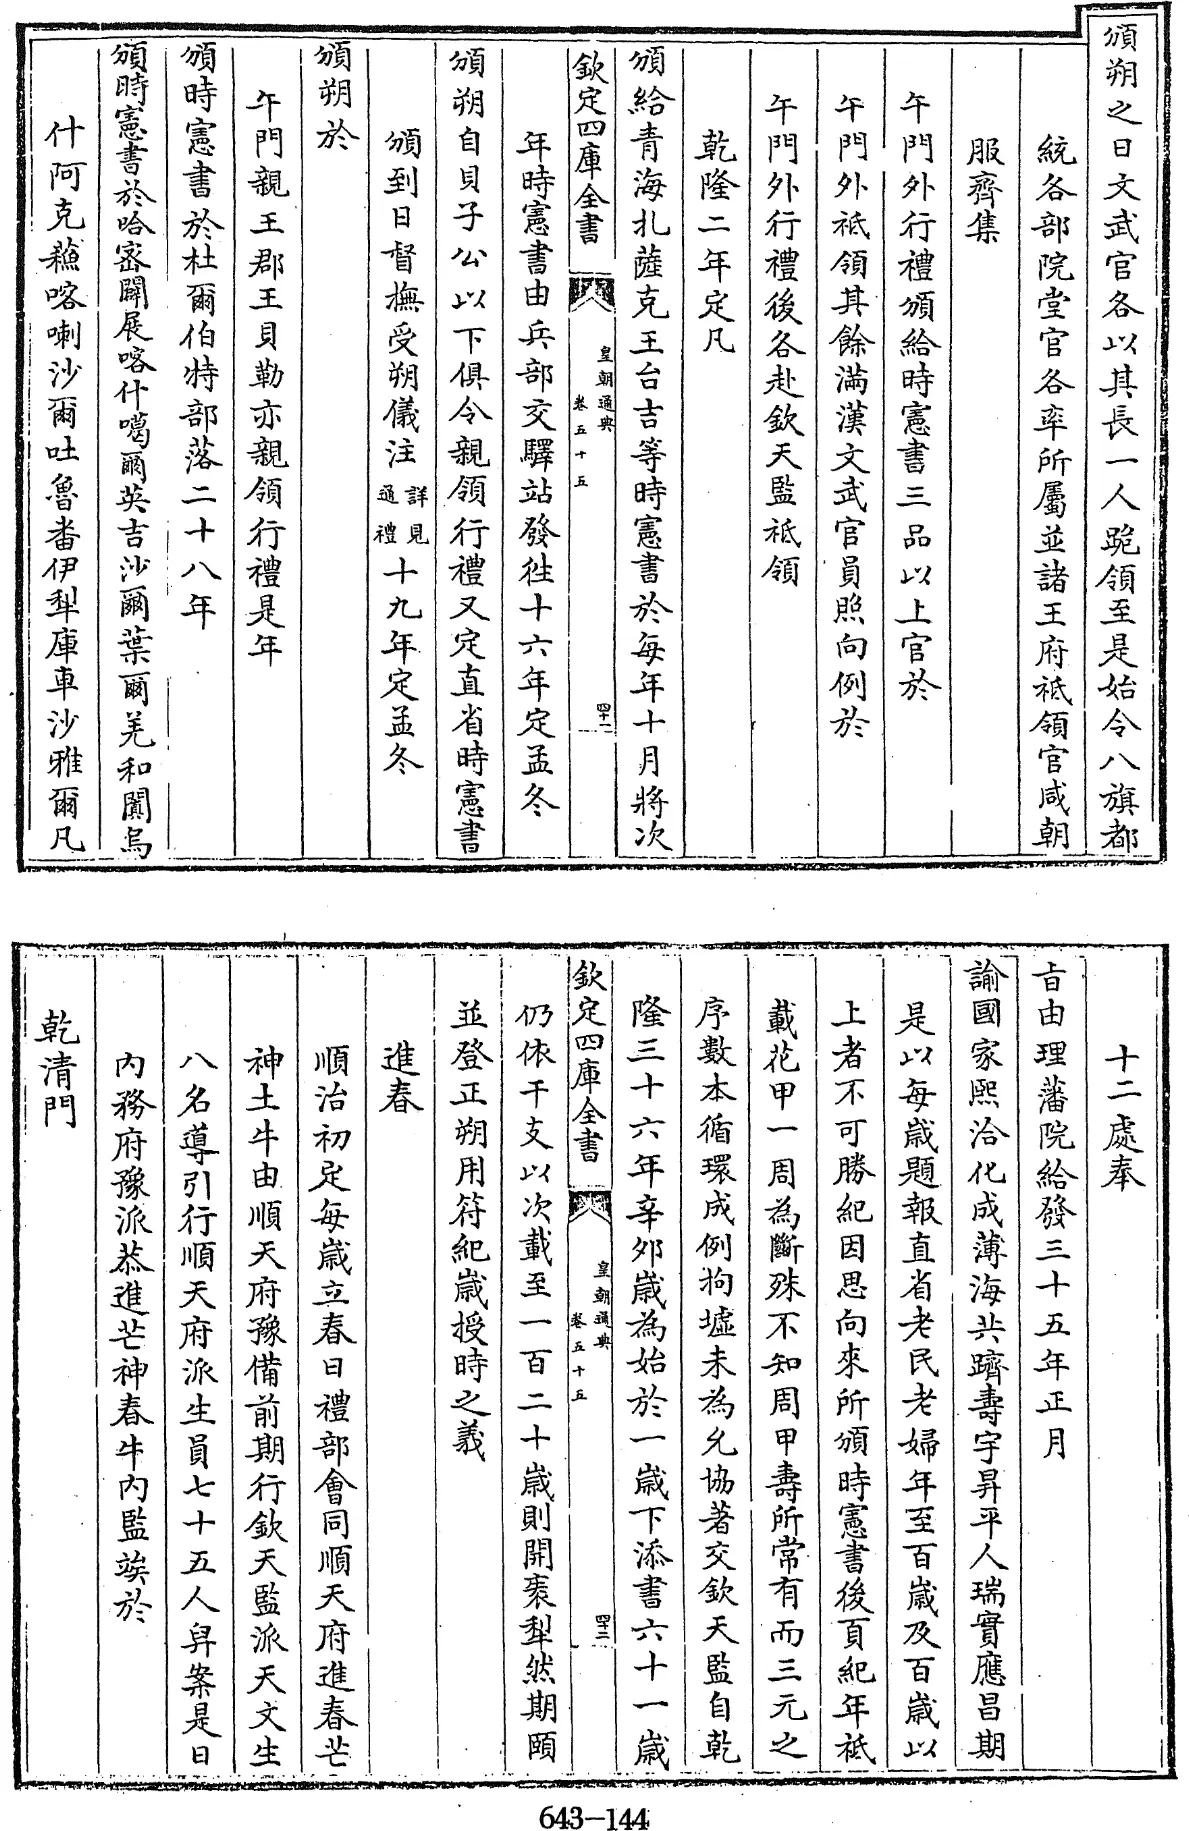 頒朔之日文武官各以其長一人跪領至是始令八旗都
統各部院堂官各率所屬並諸王府祗領官咸朝
服齊集
午門外行禮頒給時憲書三品以上官於
午門外祗領其餘滿漢文武官員照向例於
午門外行禮後各赴欽天監祗領
乾隆二年定凡
頒給青海扎薩克王台吉等時憲書於每年十月將次
欽定四庫全書
皇朝通典
卷五十五
四十一
年時憲書由兵部交驛站發往十六年定孟冬
頒朔自貝子公以下俱令親領行禮又定直省時憲書
頒到日督撫受朔儀注詳見通禮十九年定孟冬
頒朔於
午門親王郡王貝勒亦親領行禮是年
頒時憲書於杜爾伯特部落二十八年
頒時憲書於哈密闢展喀什噶爾英吉沙爾葉爾羌和闐烏
什阿克蘇喀喇沙爾吐魯番伊犁庫車沙雅爾凡
十二處奉
旨由理藩院給發三十五年正月
諭國家熙洽化成薄海共躋壽宇昇平人瑞實應昌期
是以每歲題報直省老民老婦年至百歲及百歲以
上者不可勝紀因思向來所頒時憲書後頁紀年祗
載花甲一周為斷殊不知周甲壽所常有而三元之
序數本循環成例拘墟未為允協著交欽天監自乾
隆三十六年辛卯歲為始於一歲下添書六十一歲
欽定四庫全書
皇朝通典
卷五十五
四十二
仍依干支以次載至一百二十歲則開袠犁然期頤
並登正朔用符紀歲授時之義
進春
順治初定每歲立春日禮部會同順天府進春芒
神土牛由順天府豫備前期行欽天監派天文生
八名導引行順天府派生員七十五人舁案是日
內務府豫派恭進芒神春牛內監竢於
乾清門
643-144